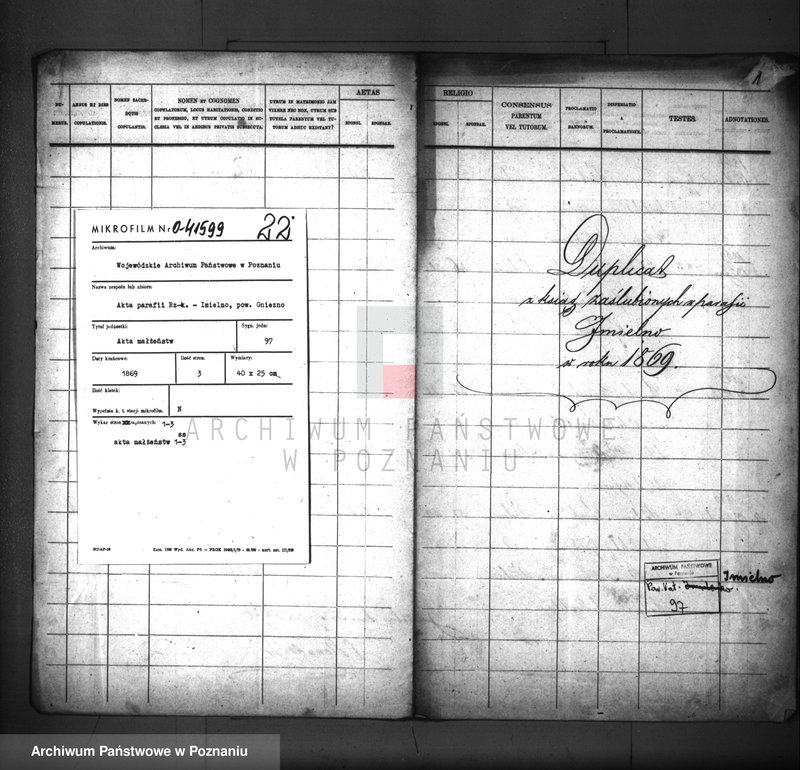 NU-
MERUS.
ANNUS ET DIES
COPULATIONIS.
NOMEN SACER-
DOTIS
COPULANTIS.
NOMEN ET COGNOMEN
COPULATORUM, LOCUS HABITATIONIS, CONDITIO
ET PROFESSIO, ET UTRUM COPULATIO IN EC-
CLESIA VEL IN AEDIBUS PRIVATIS SUBSECUTA.
UTRUM IN MATRIMONIO JAM
VIXERE NEC NON, UTRUM SUB
TUTELA PARENTUM VEL TU-
TORUM ADHUC EXISTANT?
AETAS
SPONSI.
SPONSAE.
MIKROFILM Nr 0-41599
22
Archiwum:
Wojewódzkie Archiwum Państwowe w Poznaniu
Nazwa zespołu lub zbioru:
Akta parafii Rz-k. - Imielno, pow. Gniezno
Tytuł jednostki:
Akta małżeństw
Sygn. jedn:
97
Daty krańcowe:
1869
Ilość stron:
3
Wymiary:
40 x 25 cm
Ilość klatek:
Wypełnia k. t. stacji mikrofilm.
N
Wykaz stron zapisanych: 1-3
ss
akta małżeństw 1-3
RELIGIO
SPONSI.
SPONSAE.
CONSENSUS
PARENTUM
VEL TUTORUM.
PROCLAMATIO
BANNORUM.
DISPENSATIO
A
PROCLAMATIONE.
TESTES.
ADNOTATIONES.
1
Duplicat
z ksiąg zaślubionych z parafii
Imielno
w roku 1869.
ARCHIWUM PAŃSTWOWE
w Poznaniu
Imielno
97
ARCHIWUM PAŃSTWOWE
W POZNANIU
Archiwum Państwowe w Poznaniu